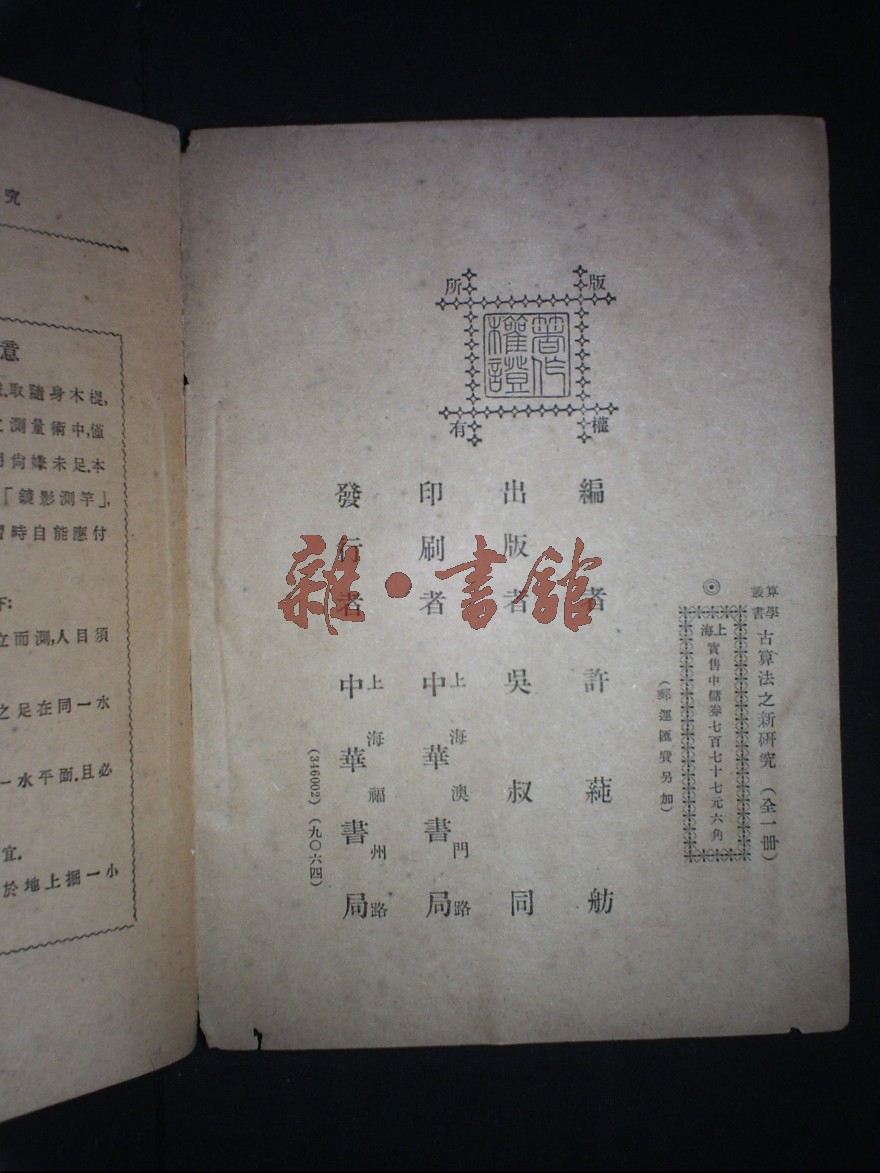 算學叢書 古算法之新研究 (全一册)
◎
上海 實售中儲券七百七十七元六角
(郵運匯費另加)
版權所有
著作權證
編者 許蒓舫
出版者 吳叔同
印刷者 上海澳門路 中華書局
發行者 上海福州路 中華書局
(346002)(九〇六四)
雜·書館
究
意
取隨身木棍,
測量術中,僅
尙嫌未足.本
「鏡影測竿」,
時自能應付
下:
立而測,人目須
之足在同一水
一水平面,且必
宜.
於地上掘一小